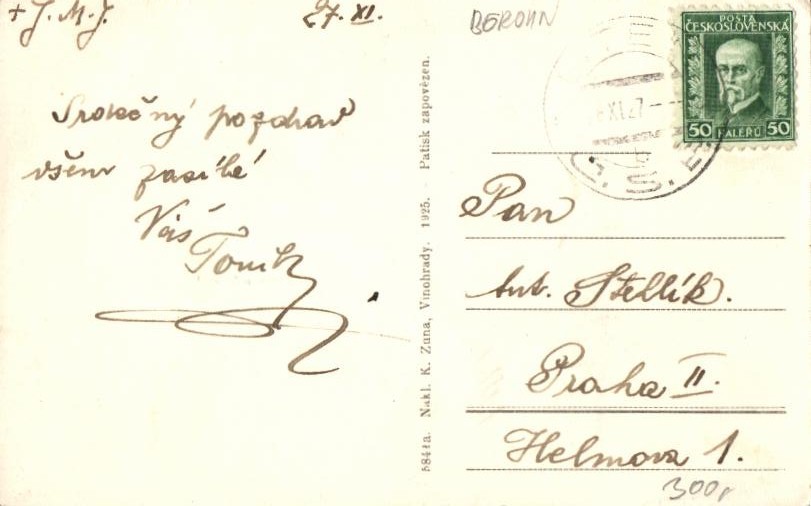 + J. M. J. 27. XI.
Srdečný pozdrav
všem zasílá
Váš
Toník
58441a. Nakl. K. Zuna, Vinohrady. 1925. Patisk zapovězen.
BEROUN
POŠTA
ČESKOSLOVENSKÁ
50 HALÉŘŮ 50
XI.27
Pan
Ant. Stehlík.
Praha II.
Helmova 1.
300,